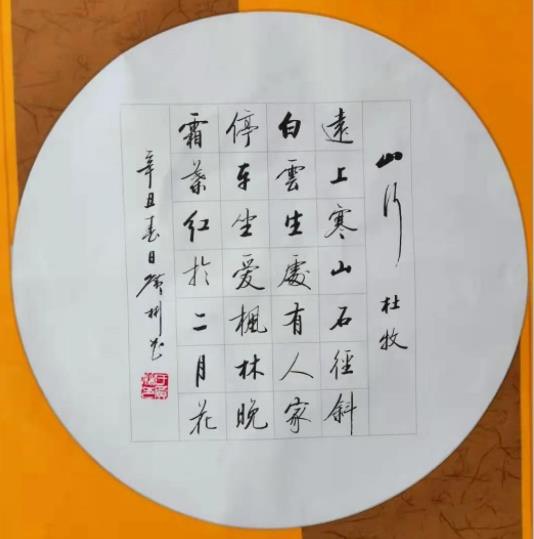 山行 杜牧
遠上寒山石徑斜
白雲生處有人家
停车坐爱楓林晚
霜葉紅於二月花
辛丑春日